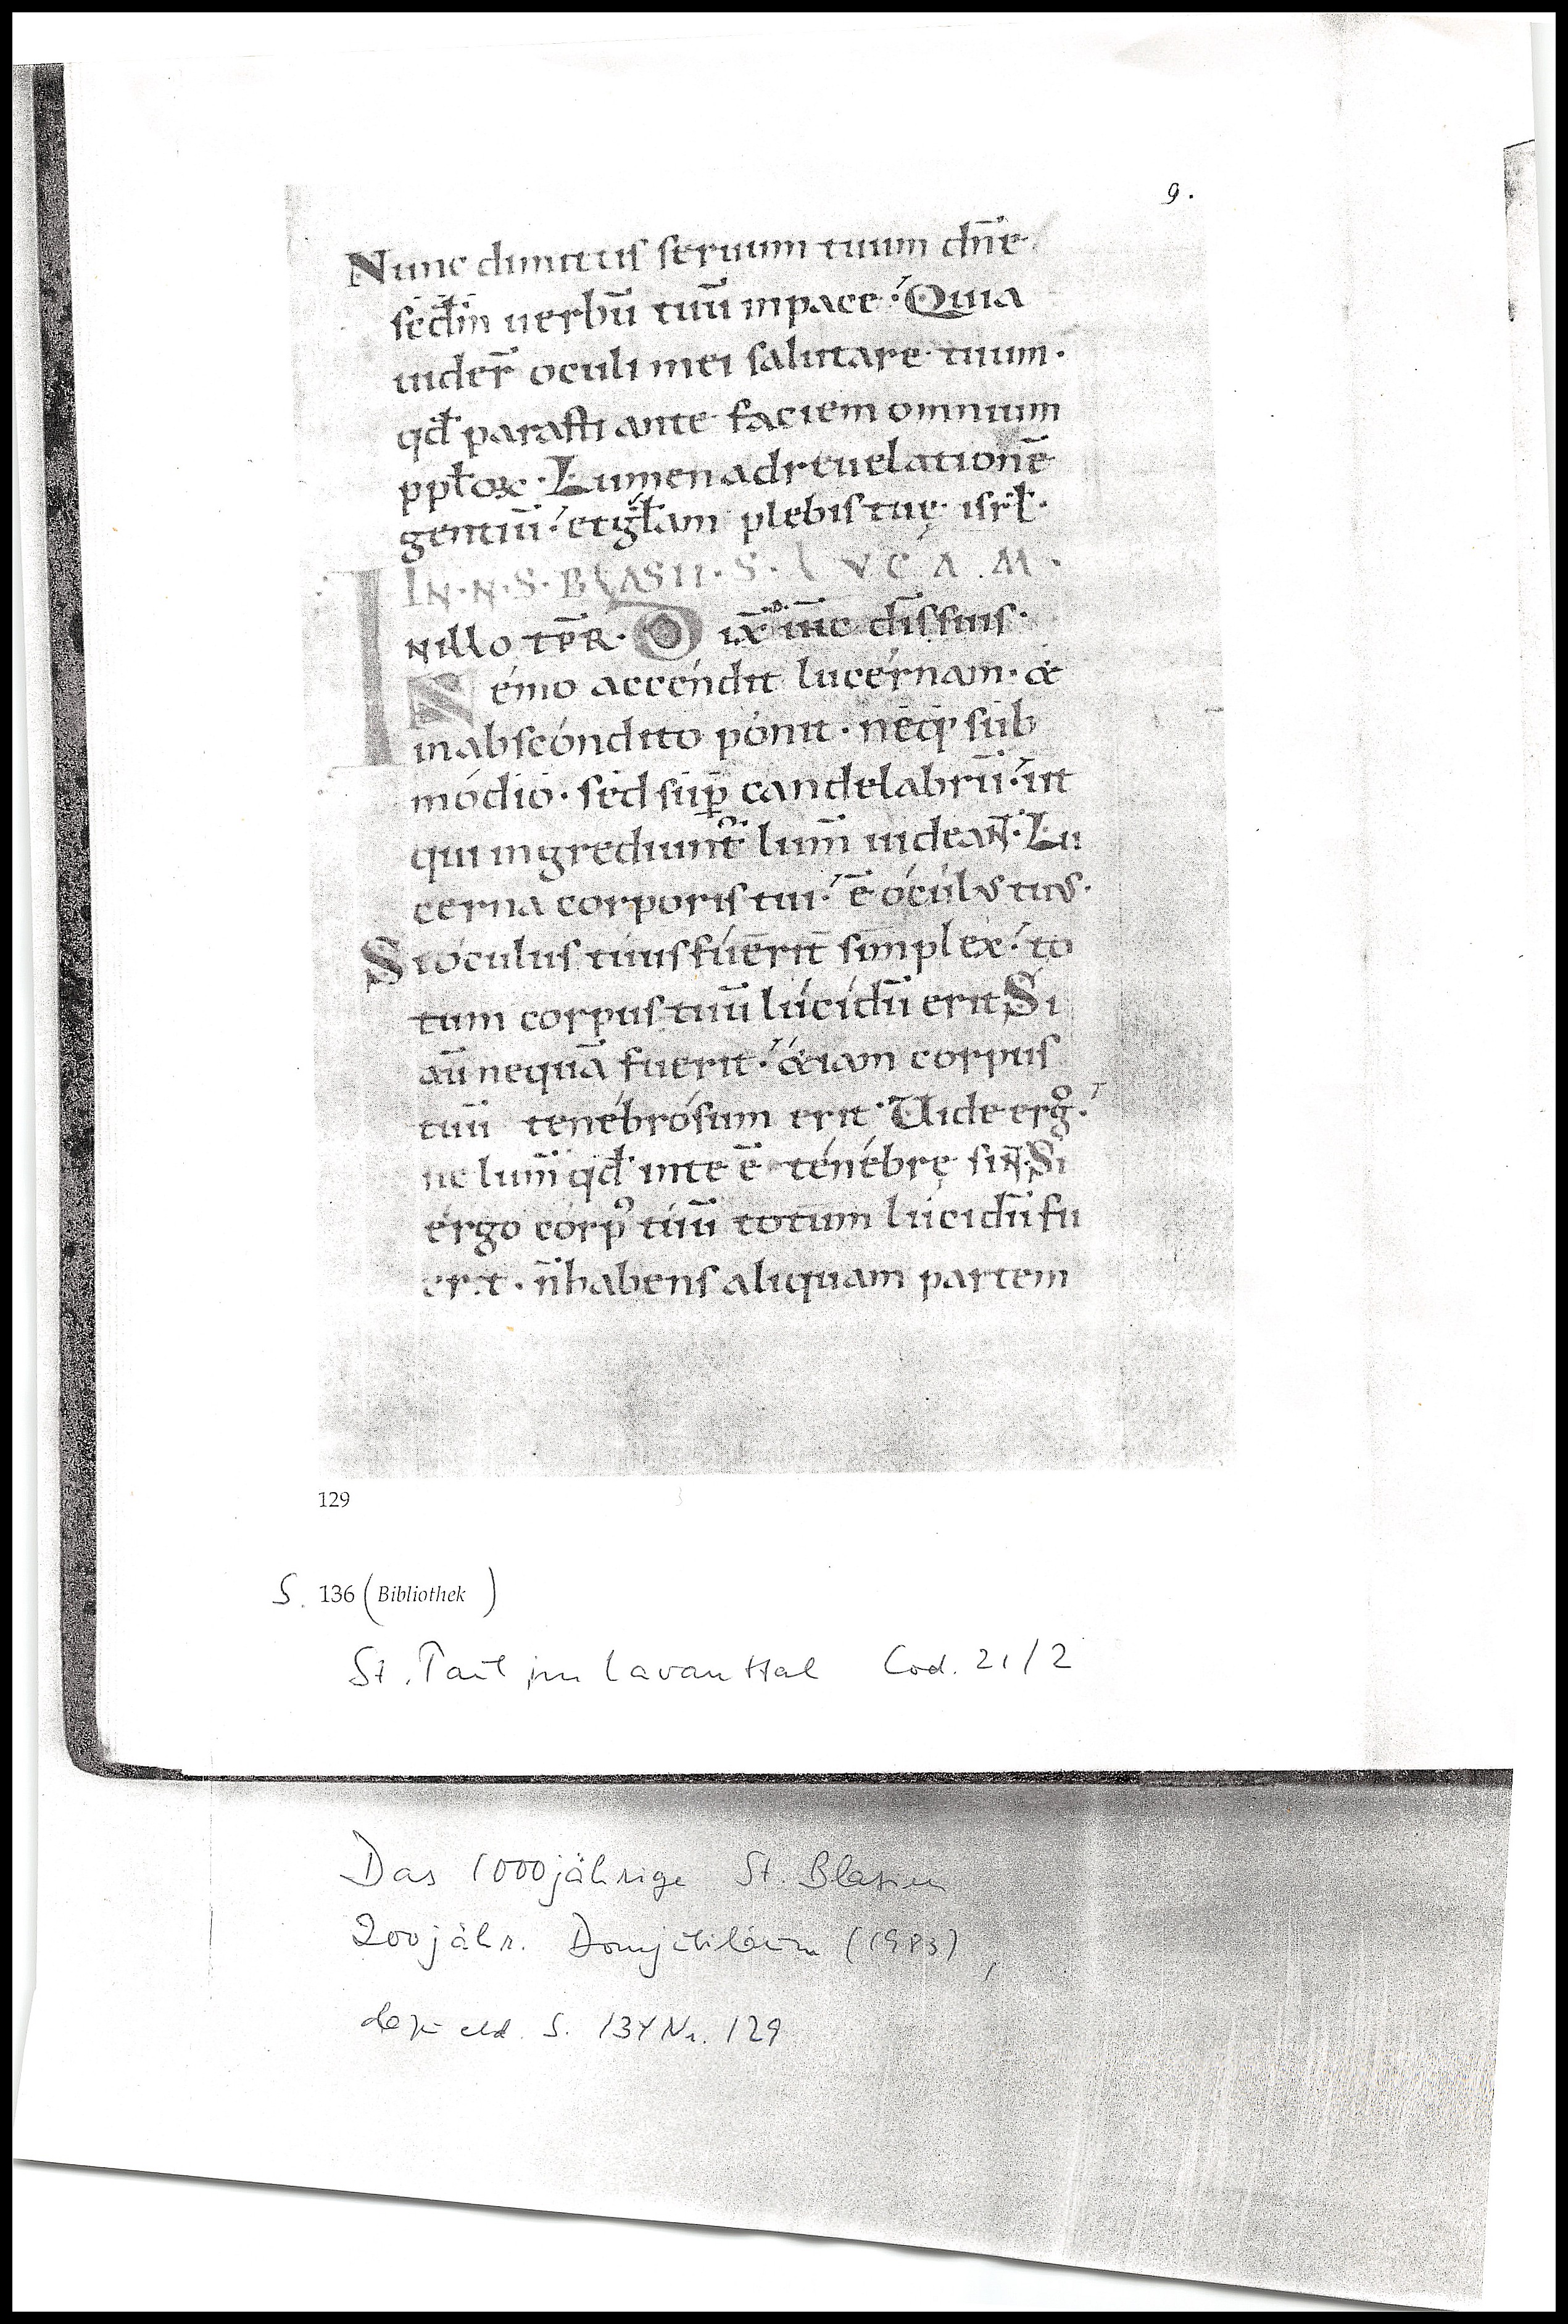 9.
Nunc dimittis seruum tuum dn̄e.
sedm̄ uerbū tuū in pace. Quia
uider̄ oculi mei salutare tuum.
qd̄ parasti ante faciem omnium
pplōꝝ. Lumen ad reuelationē
gentiū. et gl̄am plebis tuę isrl̄.
IN.N.S.BLASII.S.LVCAM.
IN illo tp̄r. Dix̄ ih̄c dis̄ suis.
Némo accéndit lucérnam. &
in abscóndito pónit. néq; sub
módio. sed sup̄ candelabrū. ut
qui ingrediunt̄ lum̄ uideant. Lu
cerna corporis tui. ē óculus tuus.
Si óculus túus fúerit simplex. to
tum corpus tuū lúcidū erit. Si
aū nequā fuerit. &iam corpus
tuū tenebrósum erit. Uide ergo.
ne lum̄ qd̄ in te ē ténébrę sint. Si
érgo córpꝰ túū totum lúcidū fu
erit. n̄ habens aliquam partem
129
S. 136 (Bibliothek)
St. Paul im Lavanttal Cod. 21/2
Das 1000jährige St. Blasien
200jähr. Domjubiläum (1983),
S. 134 Nr. 129